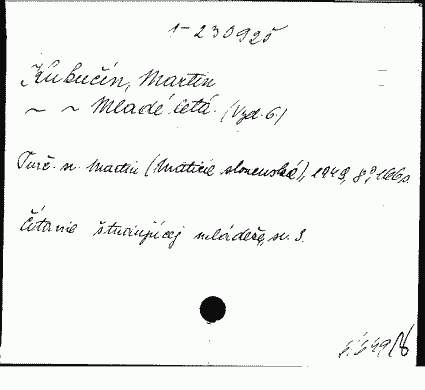 1-230925
Kukučín, Martin
~ ~ Mladé letá. (Vyd. 6.)
Turč. sv. Martin (Matice slovenská), 1949, 8°, 166 s.
Čítanie študujúcej mládeže, sv. 3.